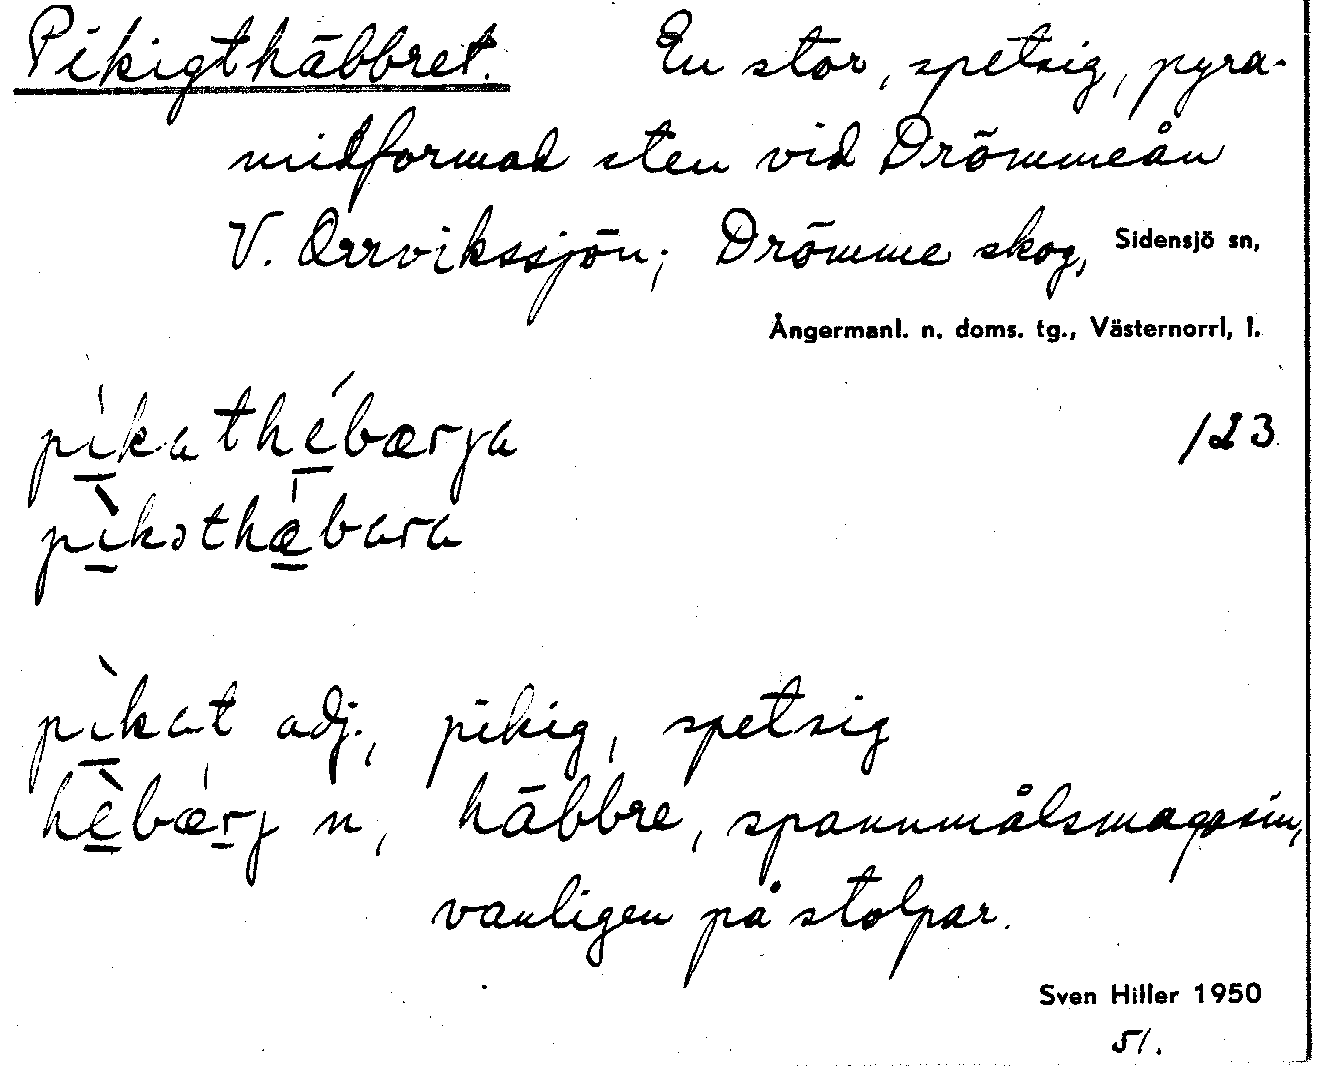 Pikigthäbbret. En stor, spetsig, pyra-
midformad sten vid Drömmeån
V. Orrvikssjön; Drömme skog, Sidensjö sn,
Ångermanl. n. doms. tg., Västernorrl, l.
pìkathébærja
123
pìkəthæ̀bara
pìkat adj., pikig, spetsig
hèbærj n, häbbre, spannmålsmagasin,
vanligen på stolpar.
Sven Hiller 1950
51.